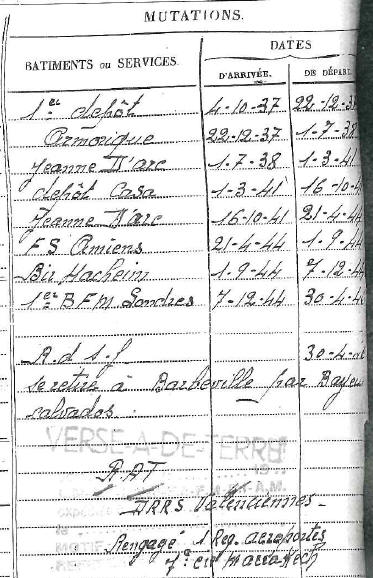 MUTATIONS.
BATIMENTS ou SERVICES. DATES
D'ARRIVÉE. DE DÉPART
1er dépôt 4-10-37 22-12-37
Armorique 22-12-37 1-7-38
Jeanne D'arc 1-7-38 1-3-41
dépôt Casa 1-3-41 16-10-4
Jeanne D'arc 16-10-41 21-4-44
F S Amiens 21-4-44 1-9-44
Bir Hacheim 1-9-44 7-12-44
1er B F M Londres 7-12-44 30-4-4
R d s f 30-4-4
se retire à Barbeville par Bayeux
calvados.
VERSÉ-A-DE-TERRE
R.A.T
DRRS Valenciennes
Rengagé 1 Reg. aéroportés
7e cie Marrakech